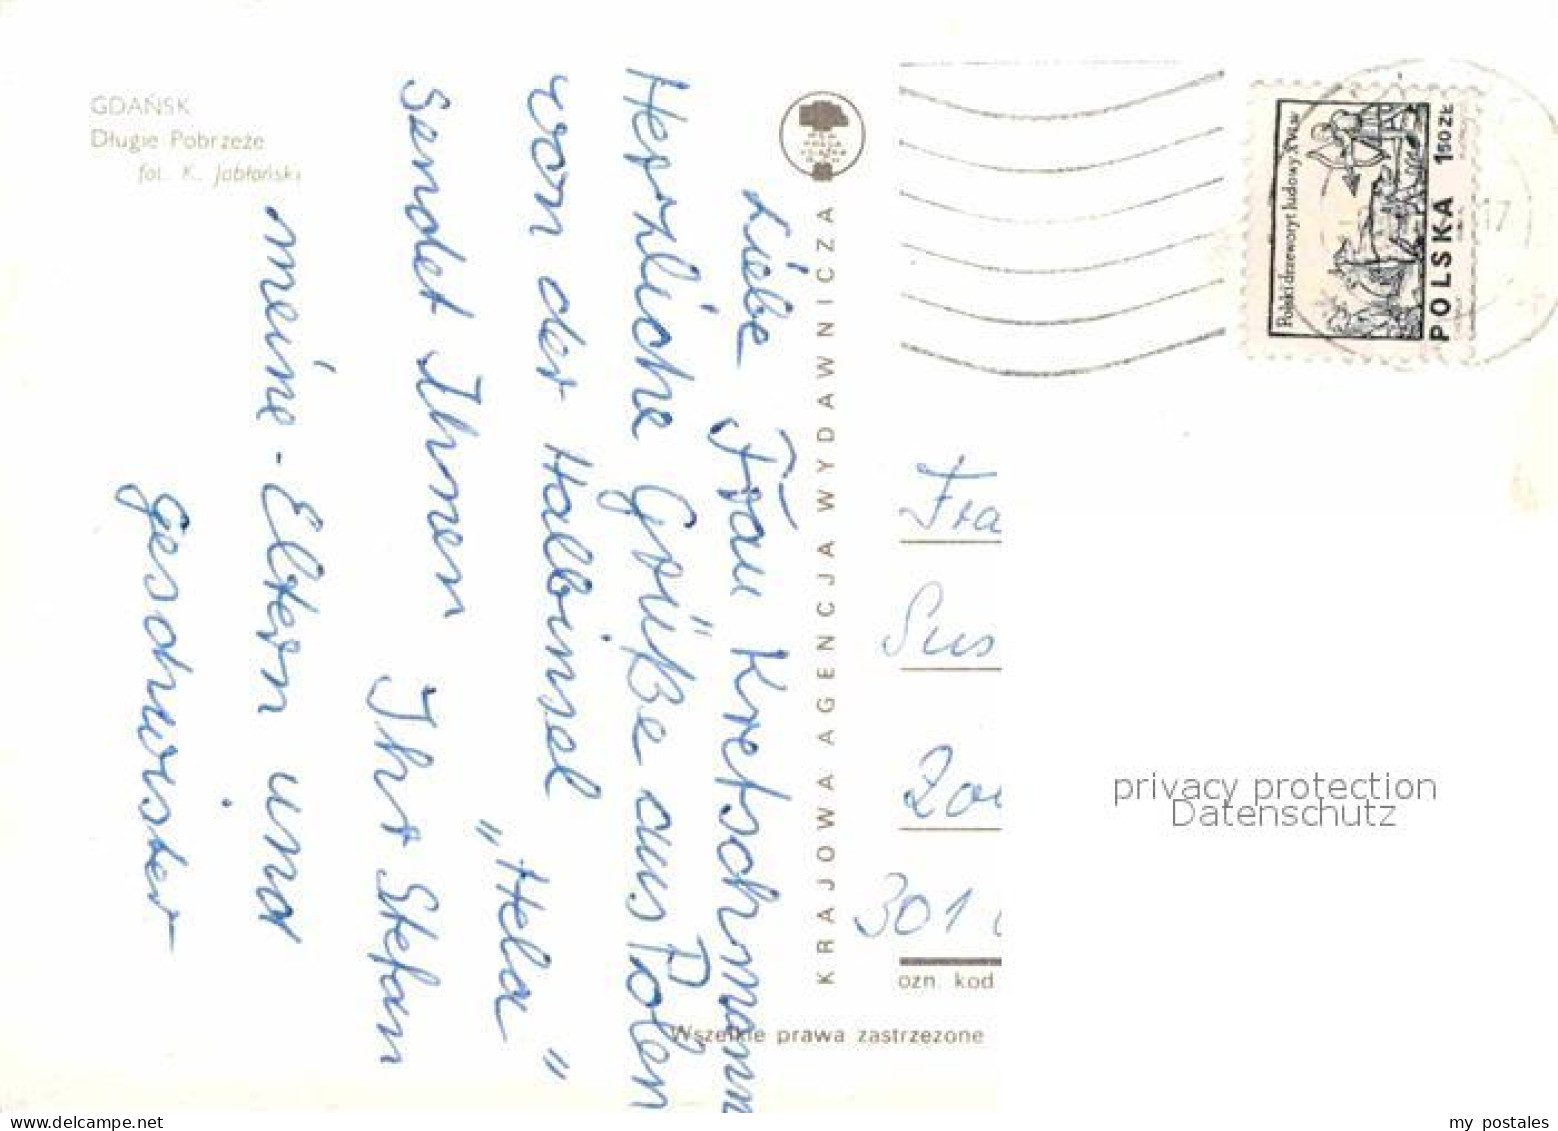 GDAŃSK
Długie Pobrzeże
fot. K. Jabłoński
Liebe Frau Kretschmann
Herzliche Grüße aus Polen
von der Halbinsel „Hela"
sendet Ihnen Ihr Stefan
meine-Eltern und
geschwister
KRAJOWA AGENCJA WYDAWNICZA
RSW
PRASA
KSIĄŻKA
RUCH
Polski drzeworyt ludowy XVI.w
POLSKA 150 ZŁ
17
Fra
Sus
Zou
301
ozn. kod
Wszelkie prawa zastrzeżone
privacy protection
Datenschutz
www.delcampe.net
my_postales